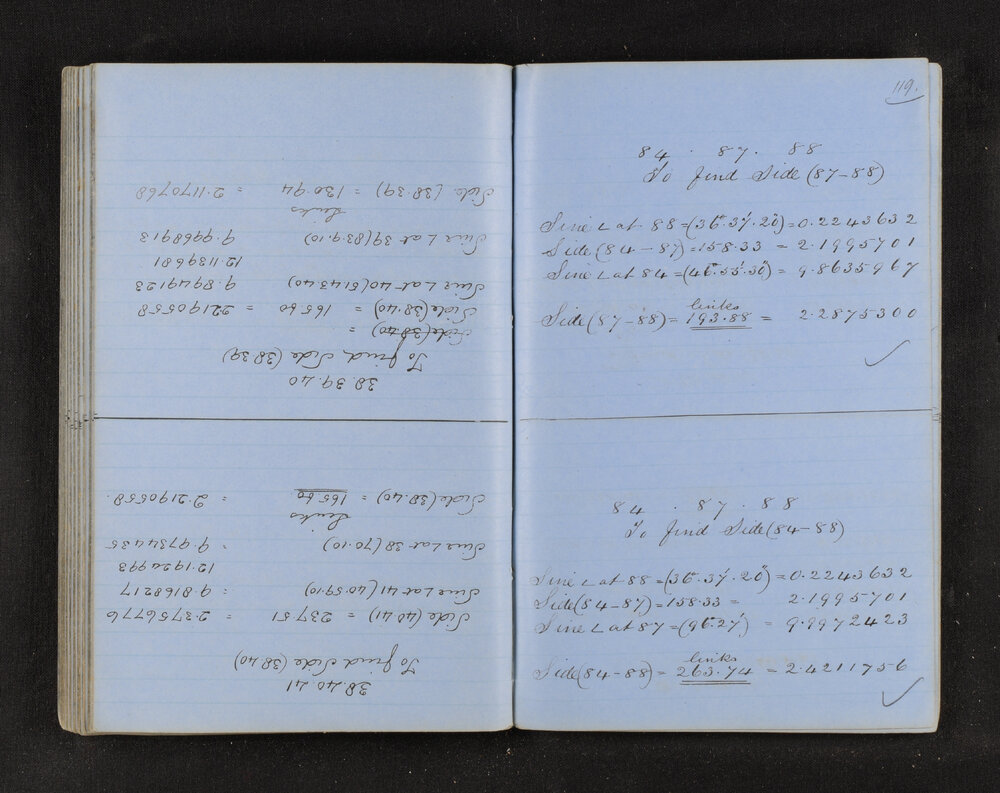 38.40.41
To find Side (38.40)
Side (40.41) = 237.51 = 2.3756776
Sine L at 41 (40.59.10) = 9.8168217
12.1924993
Sine L at 38 (70.10) = 9.9734435
Links
Side (38.40) = 165.60 = 2.2190558.
38.39.40
To find Side (38.39)
Side (38.40) =
Side (38.40) = 165.60 = 2.2190558
Sine L at 40 (51.43.40) 9.8949123
12.1139681
Sine L at 39 (83.9.10) 9.9968913
Links
Side (38.39) = 130.94 = 2.1170768
119.
84 . 87 . 88
To find Side (87-88)
Sine L at 88 = (36°.37'.20") = 0.2243632
Side (84-87) = 158.33 = 2.1995701
Sine L at 84 = (46°.55'.30") = 9.8635967
links
Side (87-88) = 193.88 = 2.2875300
84 . 87 . 88
To find Side (84-88)
Sine L at 88 = (36°.37'.20") = 0.2243632
Side (84-87) = 158.33 = 2.1995701
Sine L at 87 = (96°.27') = 9.9972423
links
Side (84-88) = 263.74 = 2.4211756